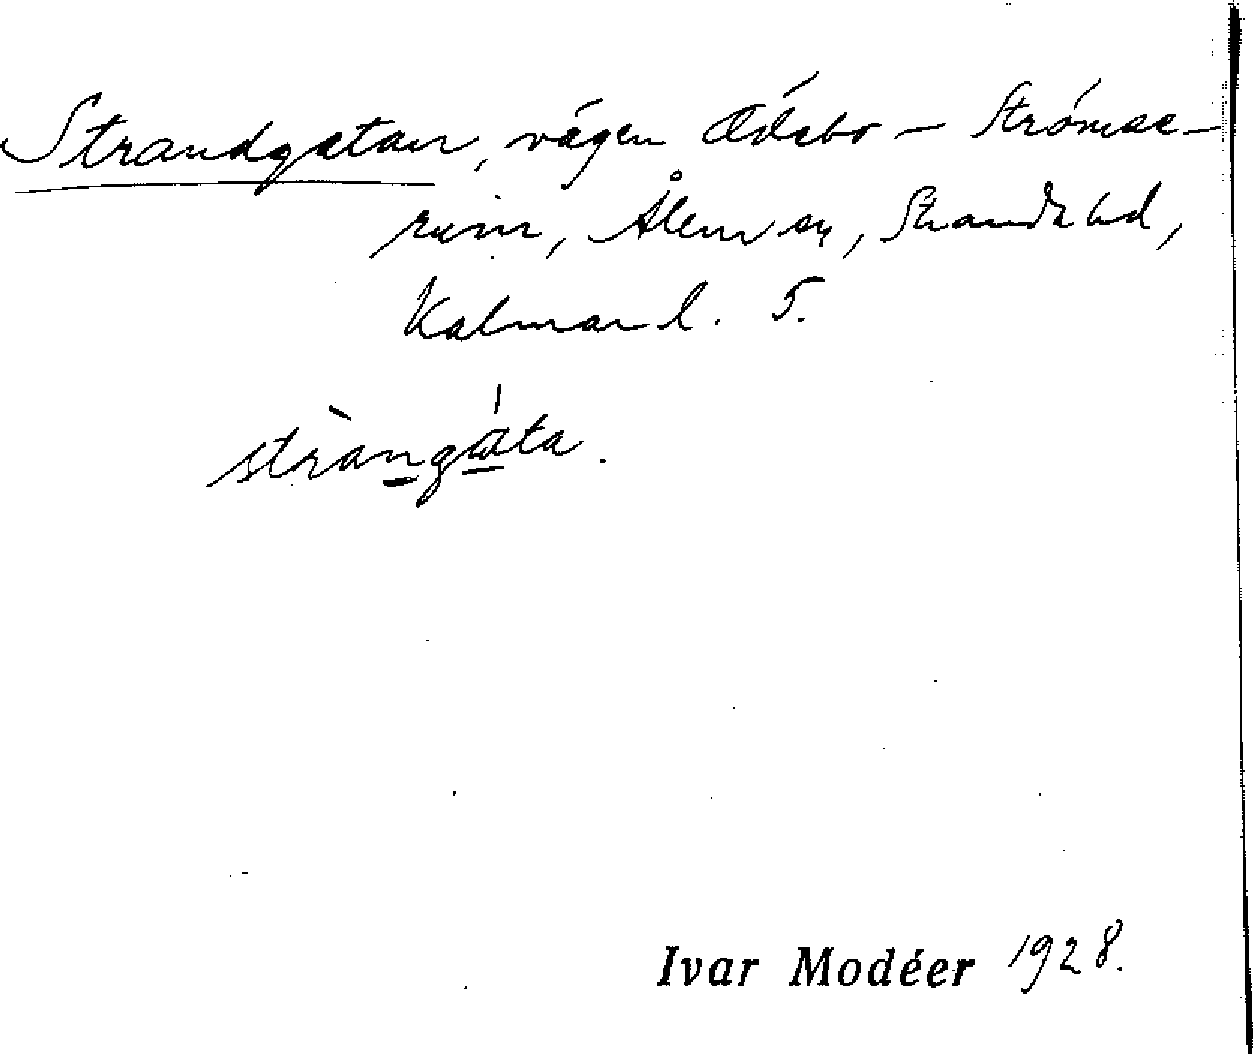 Strandgatan, vägen Ødebo – Strömse-
rum, Ålem sn, Stranda hd,
Kalmar l. 5.
strangata.
Ivar Modéer 1928.